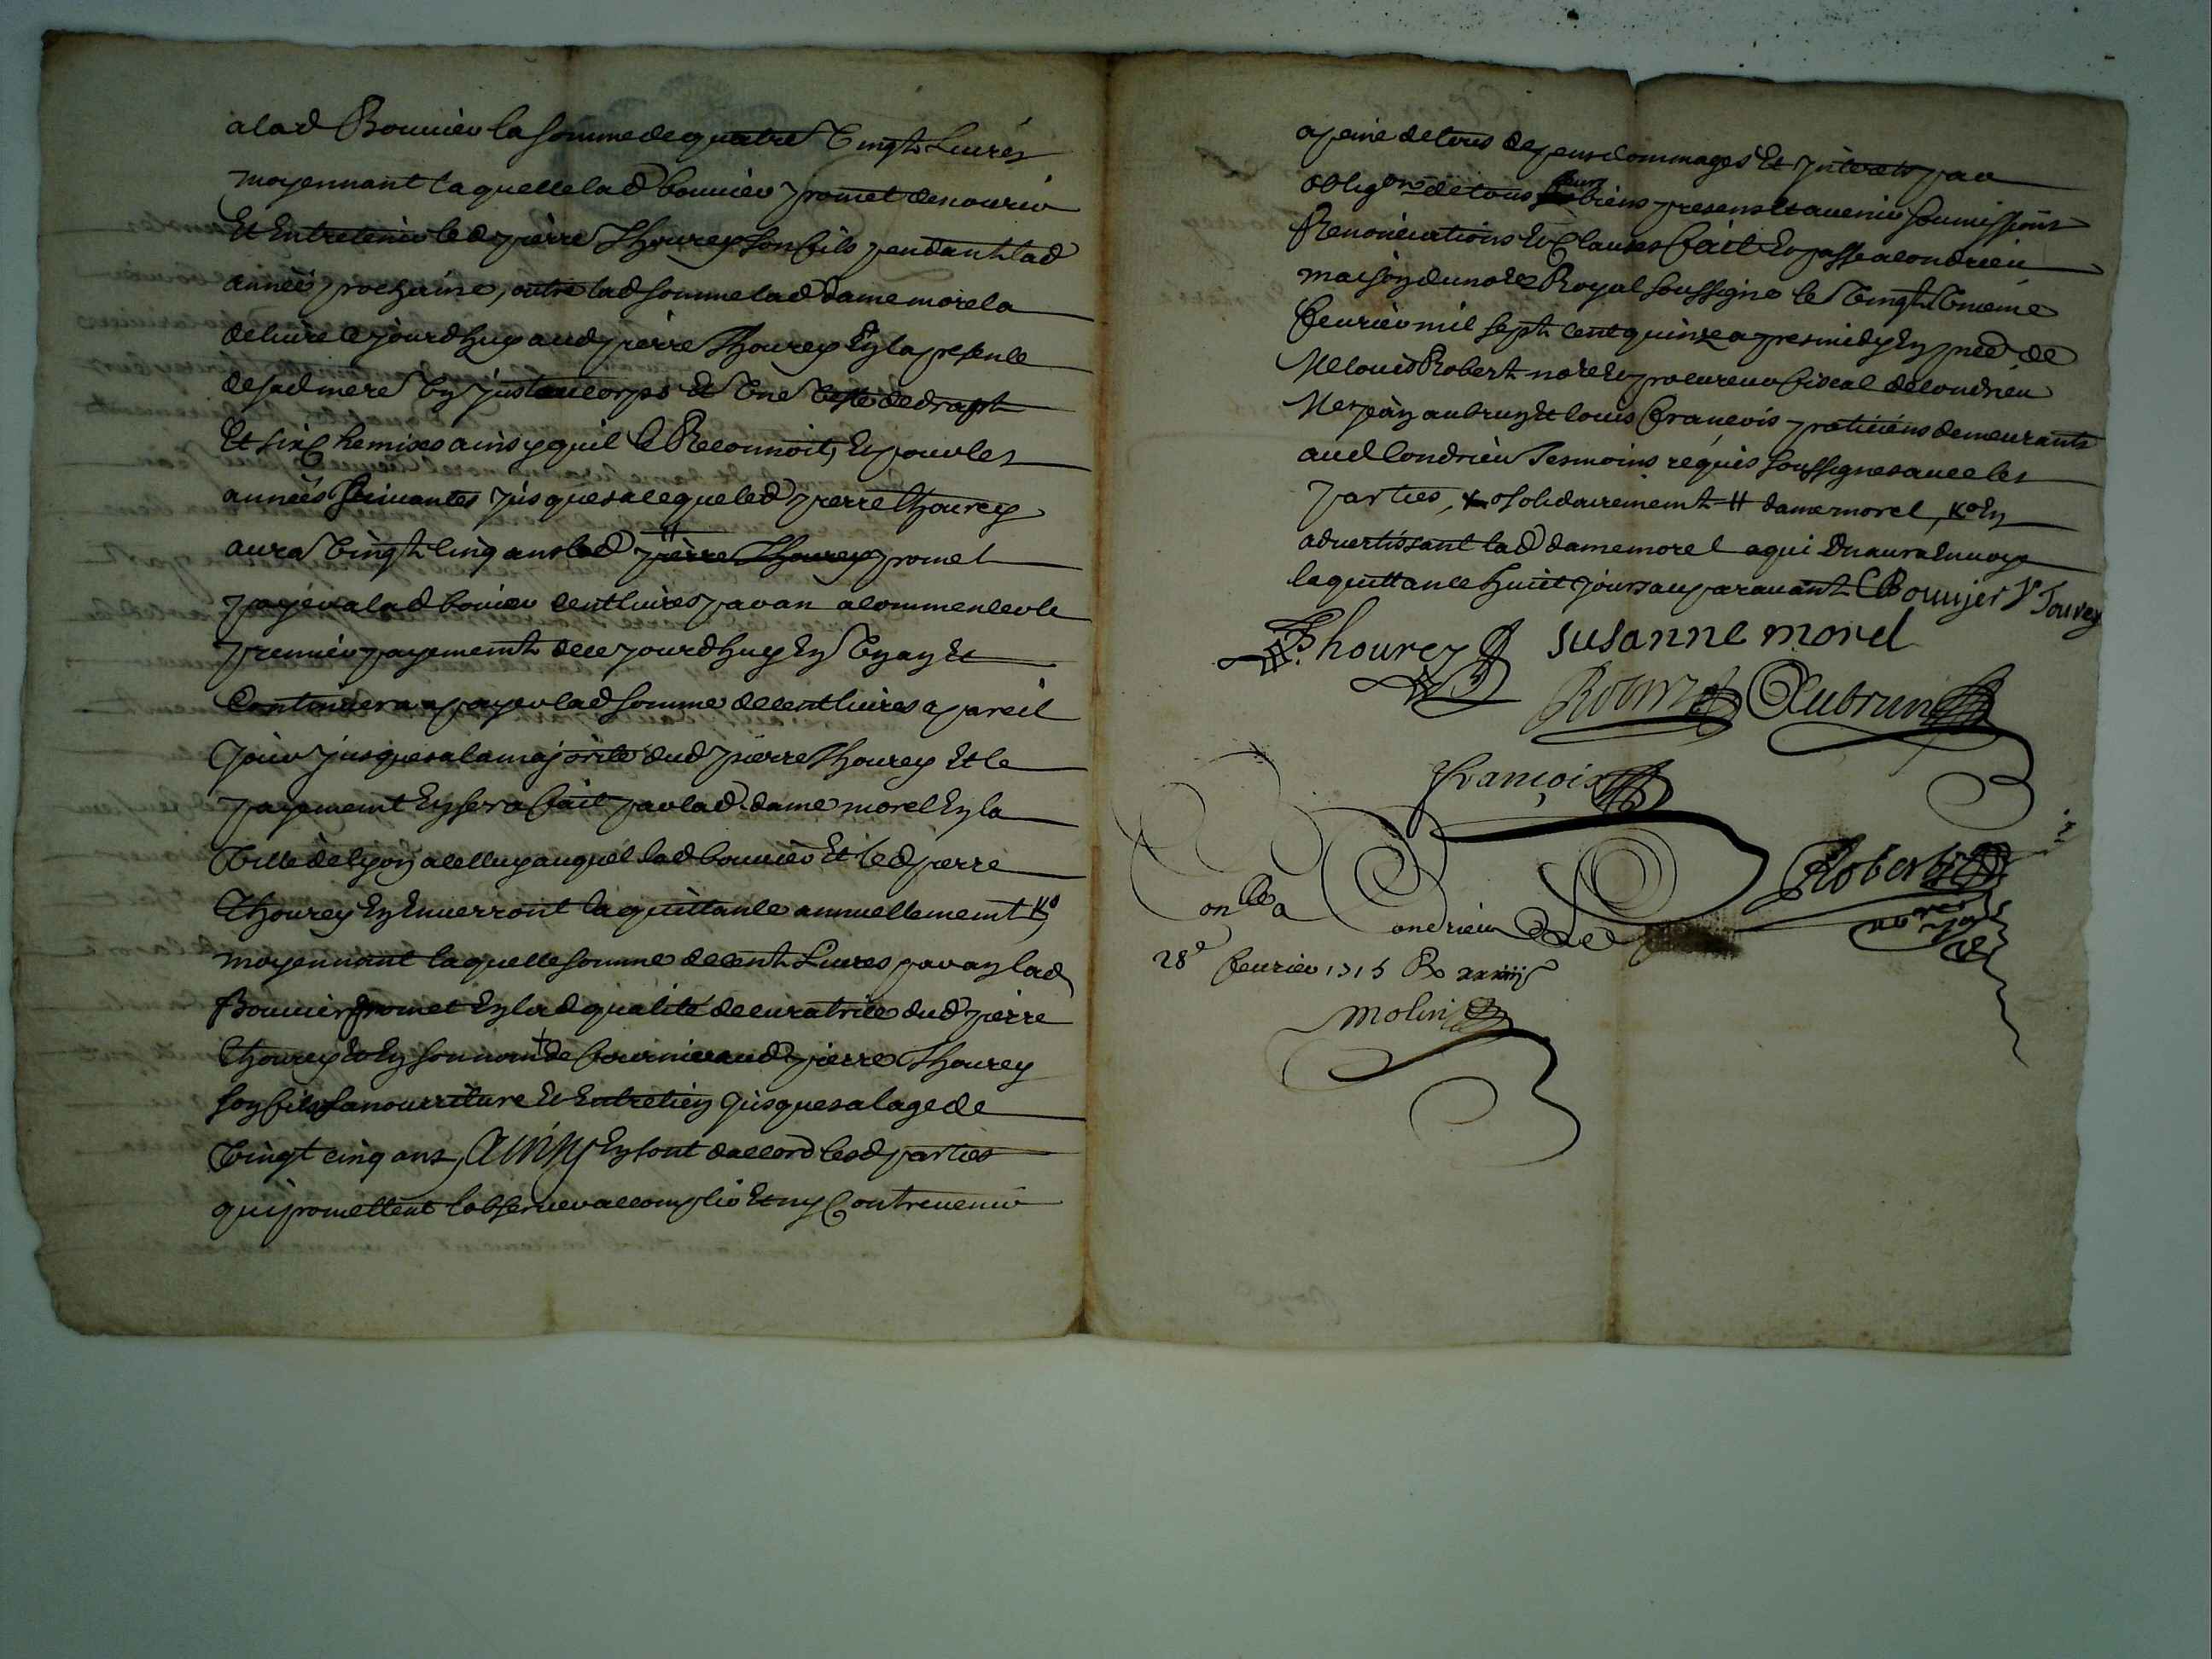 a lad Bouvier la somme de quatre vingt Livres
moyennant laquelle lad bouvier promet de nourir
Et Entretenir led pierre Thourey son fils pendant lad
année prochaine, outre lad somme lad dame morel a
delivré ce jourdhuy aud pierre Thourey En la presence
de sad mere un justaucorps et une veste de drapt
Et six chemises ainsy quil le Reconnoit, Et pour les
années suivantes jusques a ce que led pierre thourey
aura vingt cinq ans lad # pierre Thourey promet
payer a lad bovier cent livres par an a commencer le
premier payement de ce jourdhuy En un an Et
Continuera a payer lad somme de cent livres a pareil
Jour jusques a la majorité dud pierre Thourey Et le
payement En sera fait par lad dame morel En la
Ville de lyon a celluy auquel lad bouvier Et led pierre
Thourey En Enverront la quittance annuellement Ko
moyennant laquelle somme de cent Livres par an lad
Bouvier promet En lad qualité de curatrice dud pierre
Thourey Et En son nom + de fournir aud pierre Thourey
son fils sa nourriture Et Entretien Jusques a lage de
Vingt cinq ans, Ainsy En sont daccord lesd parties
qui promettent lobserver accomplir Et ny Contrevenir
a peine de tous depens dommages Et Interets par
obligon de tous leurs biens presens Et avenir soumissions
Renonciations Et Clauses fait Et passé a Condrieu
maison du nore Royal soussigné le vingt unieme
fevrier mil sept cent quinze apres midy En pnce de
Me louis Robert nore Et procureur fiscal de Condrieu
Me jean aubrun Et louis francois praticiens demeurants
aud Condrieu Tesmoins requis soussignes avec les
parties, + solidairement # dame morel, Ko En
advertissant lad dame morel a qui on aura Envoye
la quittance huict jours auparavant Bouvjer Vr Tourey
P. Thourey susanne morel
Robert Aubrun
françois
Robert
nore royal
Conlle a Condrieu le
28e fevrier 1715 Rx xxiiij s
Molin